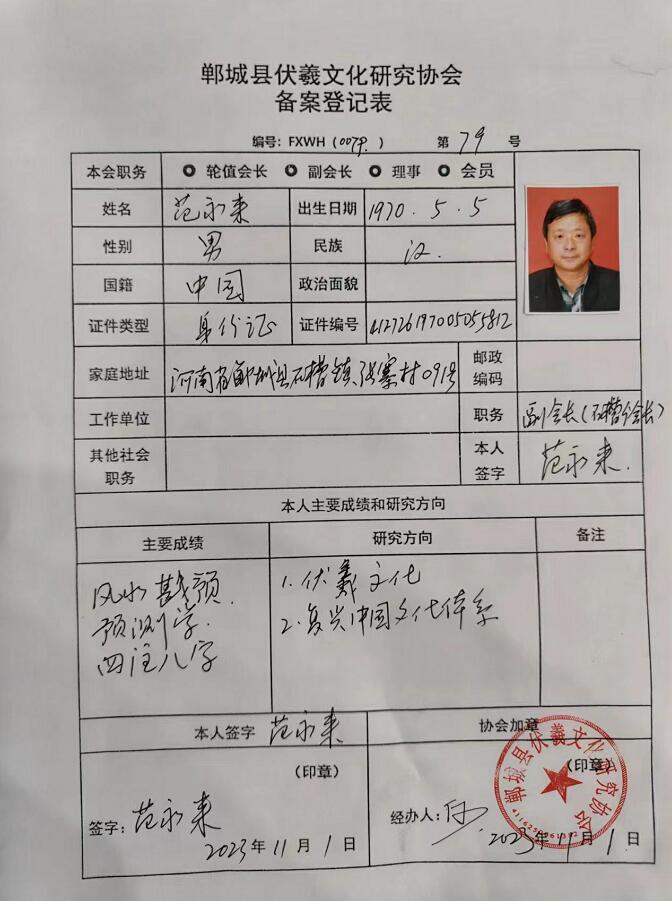 郸城县伏羲文化研究协会
备案登记表
编号: FXWH (0079.) 第 79 号
本会职务 轮值会长 副会长 理事 会员
姓名 范永来 出生日期 1970.5.5
性别 男 民族 汉.
国籍 中国 政治面貌
证件类型 身份证 证件编号 412726197005055812
家庭地址 河南省郸城县石槽镇张寨村091号 邮政编码
工作单位 职务 副会长(石槽分会长)
其他社会职务 本人签字 范永来.
本人主要成绩和研究方向
主要成绩 研究方向 备注
风水 预 1.伏羲文化
预测学. 2.复兴中国文化体系
四注八字
本人签字 范永来 协会加章
(印章) (印章)
签字: 范永来 经办人:
2023年11月1日 2023年11月1日
郸城县伏羲文化研究协会